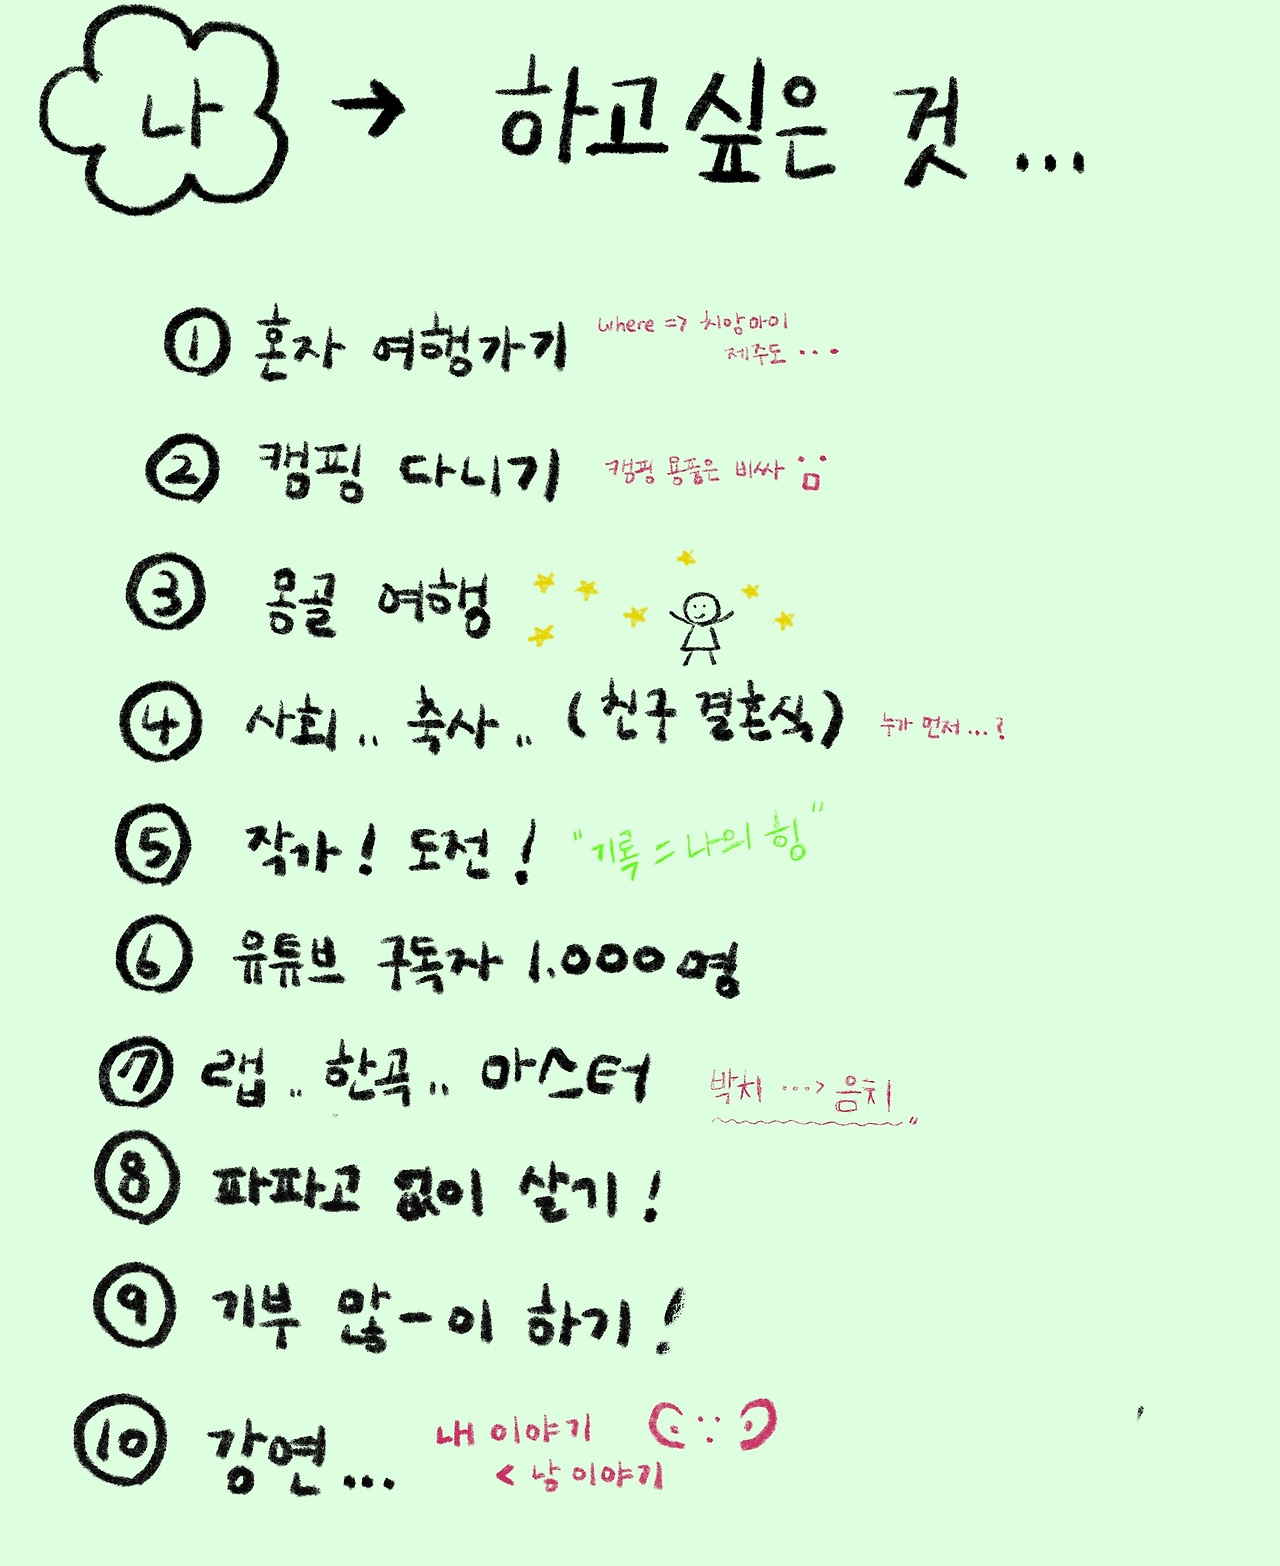 나 → 하고싶은 것 ...
① 혼자 여행가기 where => 치앙마이
제주도 ...
② 캠핑 다니기 캠핑 용품은 비싸
③ 몽골 여행
④ 사회.. 축사.. (친구 결혼식) 누가 먼저...?
⑤ 작가! 도전! "기록 = 나의 힘"
⑥ 유튜브 구독자 1.000명
⑦ 랩.. 한곡.. 마스터 박치 ...> 음치"
⑧ 파파고 없이 살기!
⑨ 기부 많-이 하기!
⑩ 강연... 내 이야기
< 남 이야기